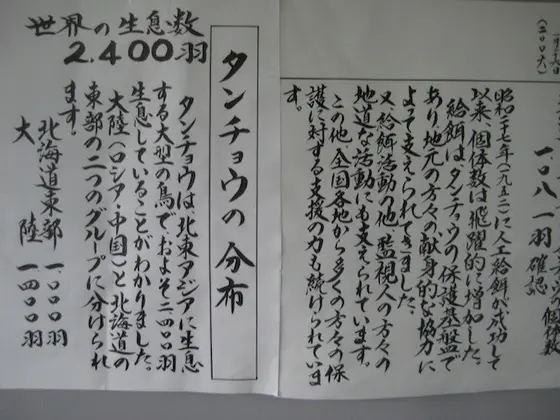 一月二十六
(二〇〇六)
一〇八一羽確認
昭和二十七年(一九五二)に人工給餌が成功して
以来、個体数は飛躍的に増加した。
給餌はタンチョウの保護基盤で
あり地元の方々の献身的な協力に
よって支えられてきました。
又給餌活動の他、監視人の方々の
地道な活動にも支えられています。
この他、全国各地から多くの方々の保
護に対する支援の力も続けられていま
す。
タンチョウの分布
世界の生息数
2.400羽
タンチョウは、北東アジアに生息
する大型の鳥で、およそ二、四〇〇羽
生息していることがわかりました。
大陸(ロシア・中国)と北海道の
東部の二つのグループに分けられ
ます。
北海道東部 一、〇〇〇羽
大陸 一、四〇〇羽